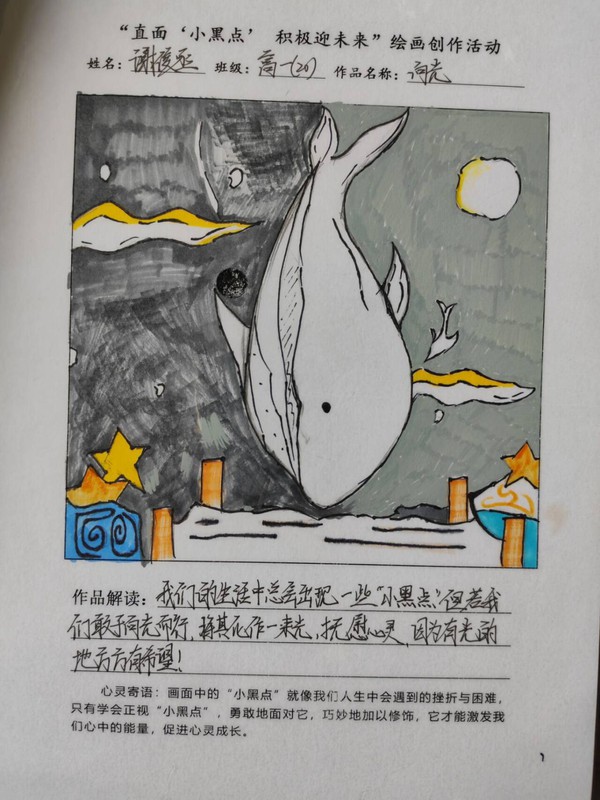 “直面‘小黑点’ 积极迎未来”绘画创作活动
姓名：谢俊丞 班级：高一(20) 作品名称：向光
作品解读：我们的生活中总会出现一些“小黑点”，但若我
们敢于向光而行，将其化作一束光，抚慰心灵，因为有光的
地方方有希望！
心灵寄语：画面中的“小黑点”就像我们人生中会遇到的挫折与困难，
只有学会正视“小黑点”，勇敢地面对它，巧妙地加以修饰，它才能激发我
们心中的能量，促进心灵成长。